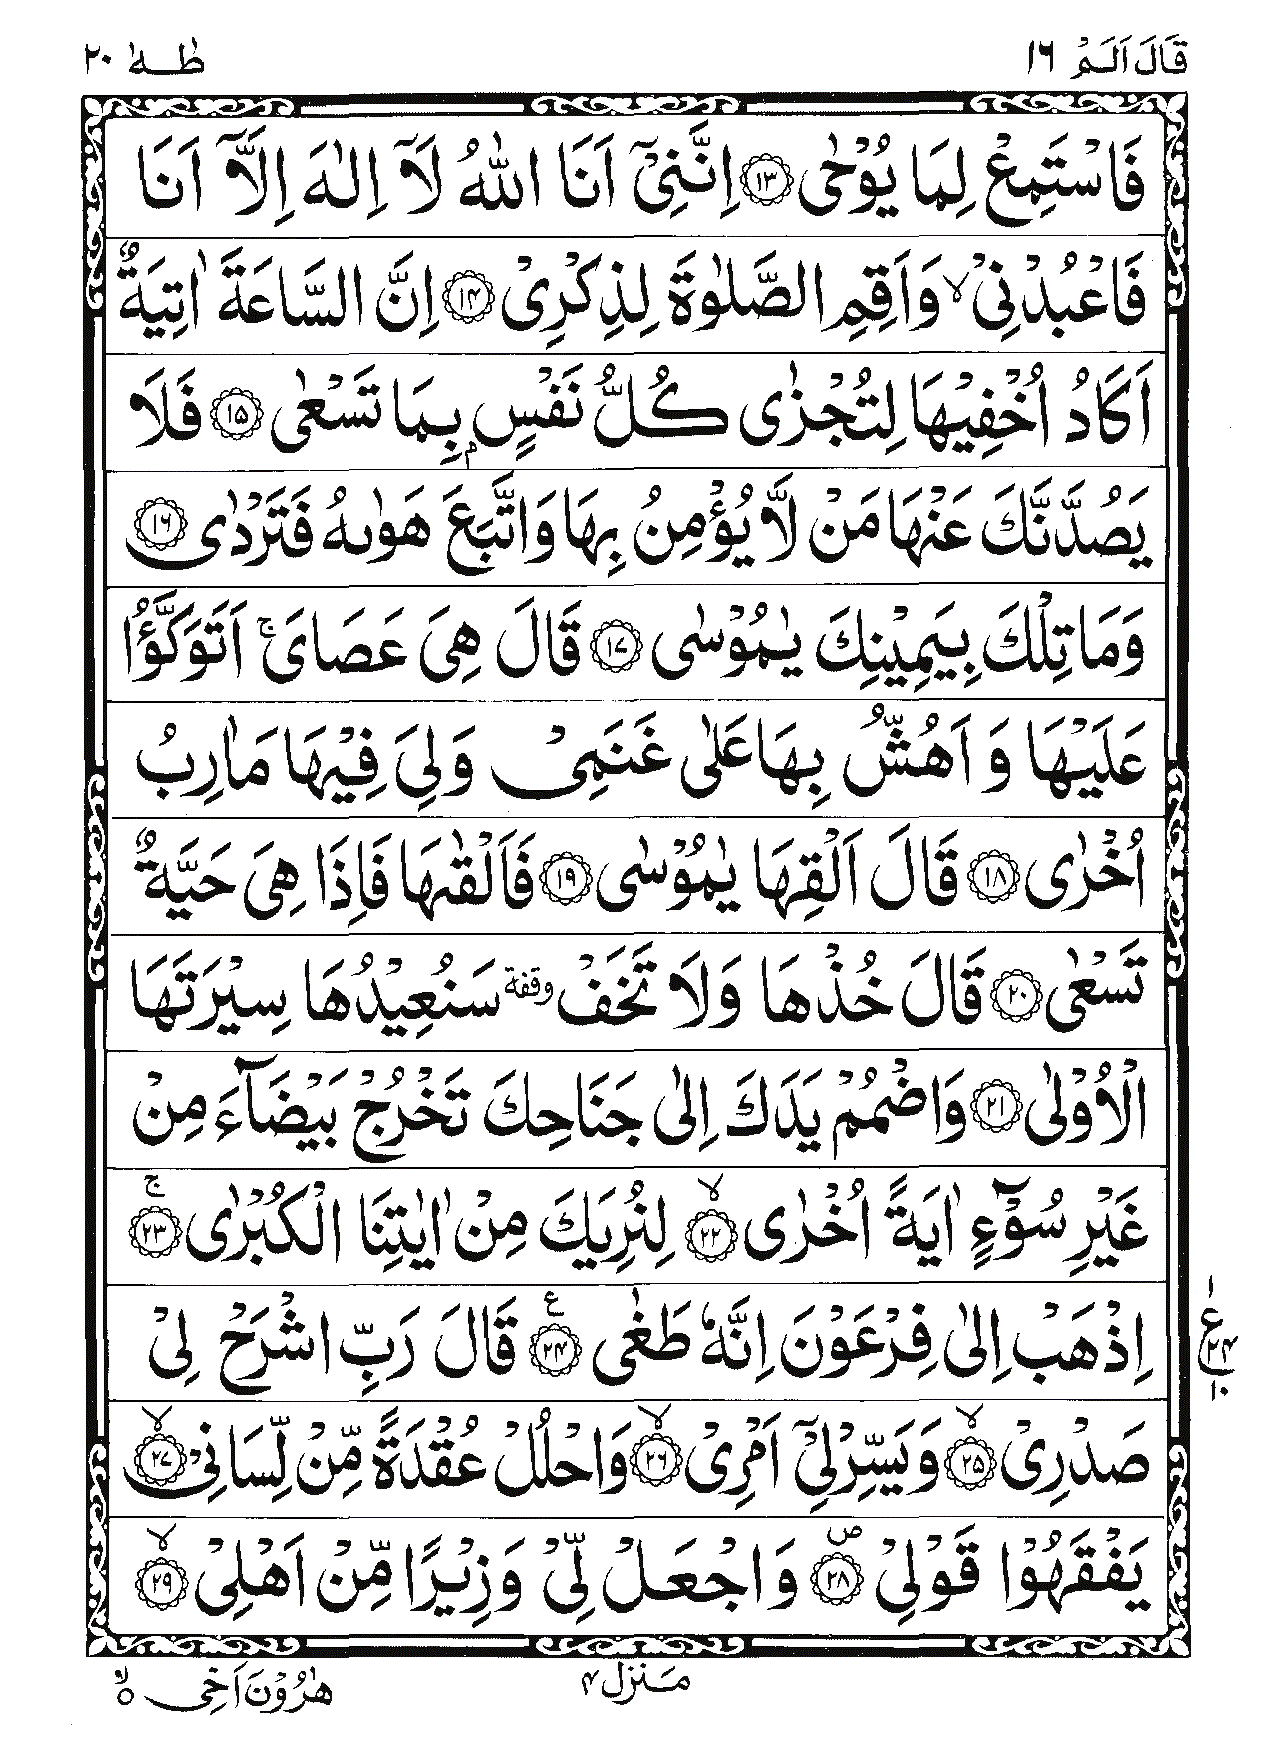 قَالَ اَلَمْ ١٦
طٰهٰ ٢٠
فَاسْتَمِعْ لِمَا يُوْحٰى ﴿١٣﴾ اِنَّنِیْۤ اَنَا اللّٰهُ لَاۤ اِلٰهَ اِلَّاۤ اَنَا
فَاعْبُدْنِیْ ۙ وَاَقِمِ الصَّلٰوةَ لِذِكْرِیْ ﴿١٤﴾ اِنَّ السَّاعَةَ اٰتِیَةٌ
اَكَادُ اُخْفِیْهَا لِتُجْزٰى كُلُّ نَفْسٍۭ بِمَا تَسْعٰى ﴿١٥﴾ فَلَا
یَصُدَّنَّكَ عَنْهَا مَنْ لَّا یُؤْمِنُ بِهَا وَاتَّبَعَ هَوٰىهُ فَتَرْدٰى ﴿١٦﴾
وَمَا تِلْكَ بِیَمِیْنِكَ یٰمُوْسٰى ﴿١٧﴾ قَالَ هِیَ عَصَایَ ۚ اَتَوَكَّؤُا
عَلَیْهَا وَ اَهُشُّ بِهَا عَلٰى غَنَمِیْ وَلِیَ فِیْهَا مَاٰرِبُ
اُخْرٰى ﴿١٨﴾ قَالَ اَلْقِهَا یٰمُوْسٰى ﴿١٩﴾ فَاَلْقٰىهَا فَاِذَا هِیَ حَیَّةٌ
تَسْعٰى ﴿٢٠﴾ قَالَ خُذْهَا وَلَا تَخَفْ وقفة سَنُعِیْدُهَا سِیْرَتَهَا
الْاُوْلٰى ﴿٢١﴾ وَاضْمُمْ یَدَكَ اِلٰى جَنَاحِكَ تَخْرُجْ بَیْضَآءَ مِنْ
غَیْرِ سُوْٓءٍ اٰیَةً اُخْرٰى ﴿٢٢﴾ ۙ لِنُرِیَكَ مِنْ اٰیٰتِنَا الْكُبْرٰى ﴿٢٣﴾ ۚ
اِذْهَبْ اِلٰى فِرْعَوْنَ اِنَّهٗ طَغٰى ﴿٢٤﴾ ع قَالَ رَبِّ اشْرَحْ لِیْ
١ ع ٢٤ ١٠
صَدْرِیْ ﴿٢٥﴾ ۙ وَیَسِّرْ لِیْۤ اَمْرِیْ ﴿٢٦﴾ ۙ وَاحْلُلْ عُقْدَةً مِّنْ لِّسَانِیْ ﴿٢٧﴾ ۙ
یَفْقَهُوْا قَوْلِیْ ﴿٢٨﴾ ص وَاجْعَلْ لِّیْ وَزِیْرًا مِّنْ اَهْلِیْ ﴿٢٩﴾ ۙ
مَنزل ٤
هٰرُوْنَ اَخِی ۙ ٥